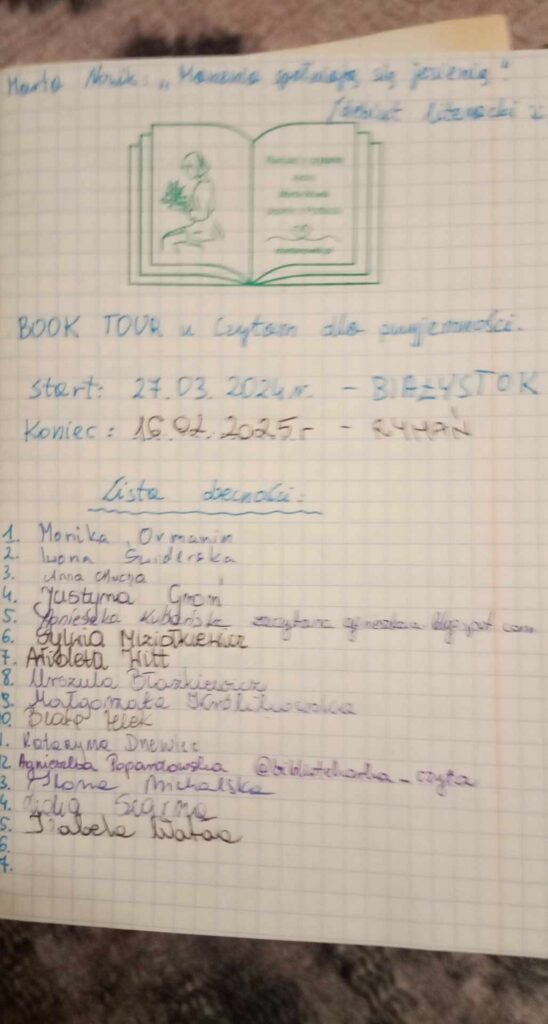 Marta Nowik: „Marzenia spełniają się jesienią".
/debiut literacki
BOOK TOUR u Czytam dla przyjemności.
Start: 27.03.2024r. - BIAŁYSTOK
Koniec: 16.02.2025r - RYMAŃ
Lista obecności:
1. Monika Ormanin
2. Iwona Świderska
3. Anna Mucha
4. Justyna Grom
5. Agnieszka Kubańska
6. Sylwia Miziołkiewicz
7. Arleta Witt
8. Urszula Błaszkiewicz
9. Małgorzata Królikowska
10.
1. Katarzyna Drewiec
12. Agnieszka Popardowska @bibliotekarka_czyta
3. Ilona Michalska
4.
5. Izabela
6.
7.